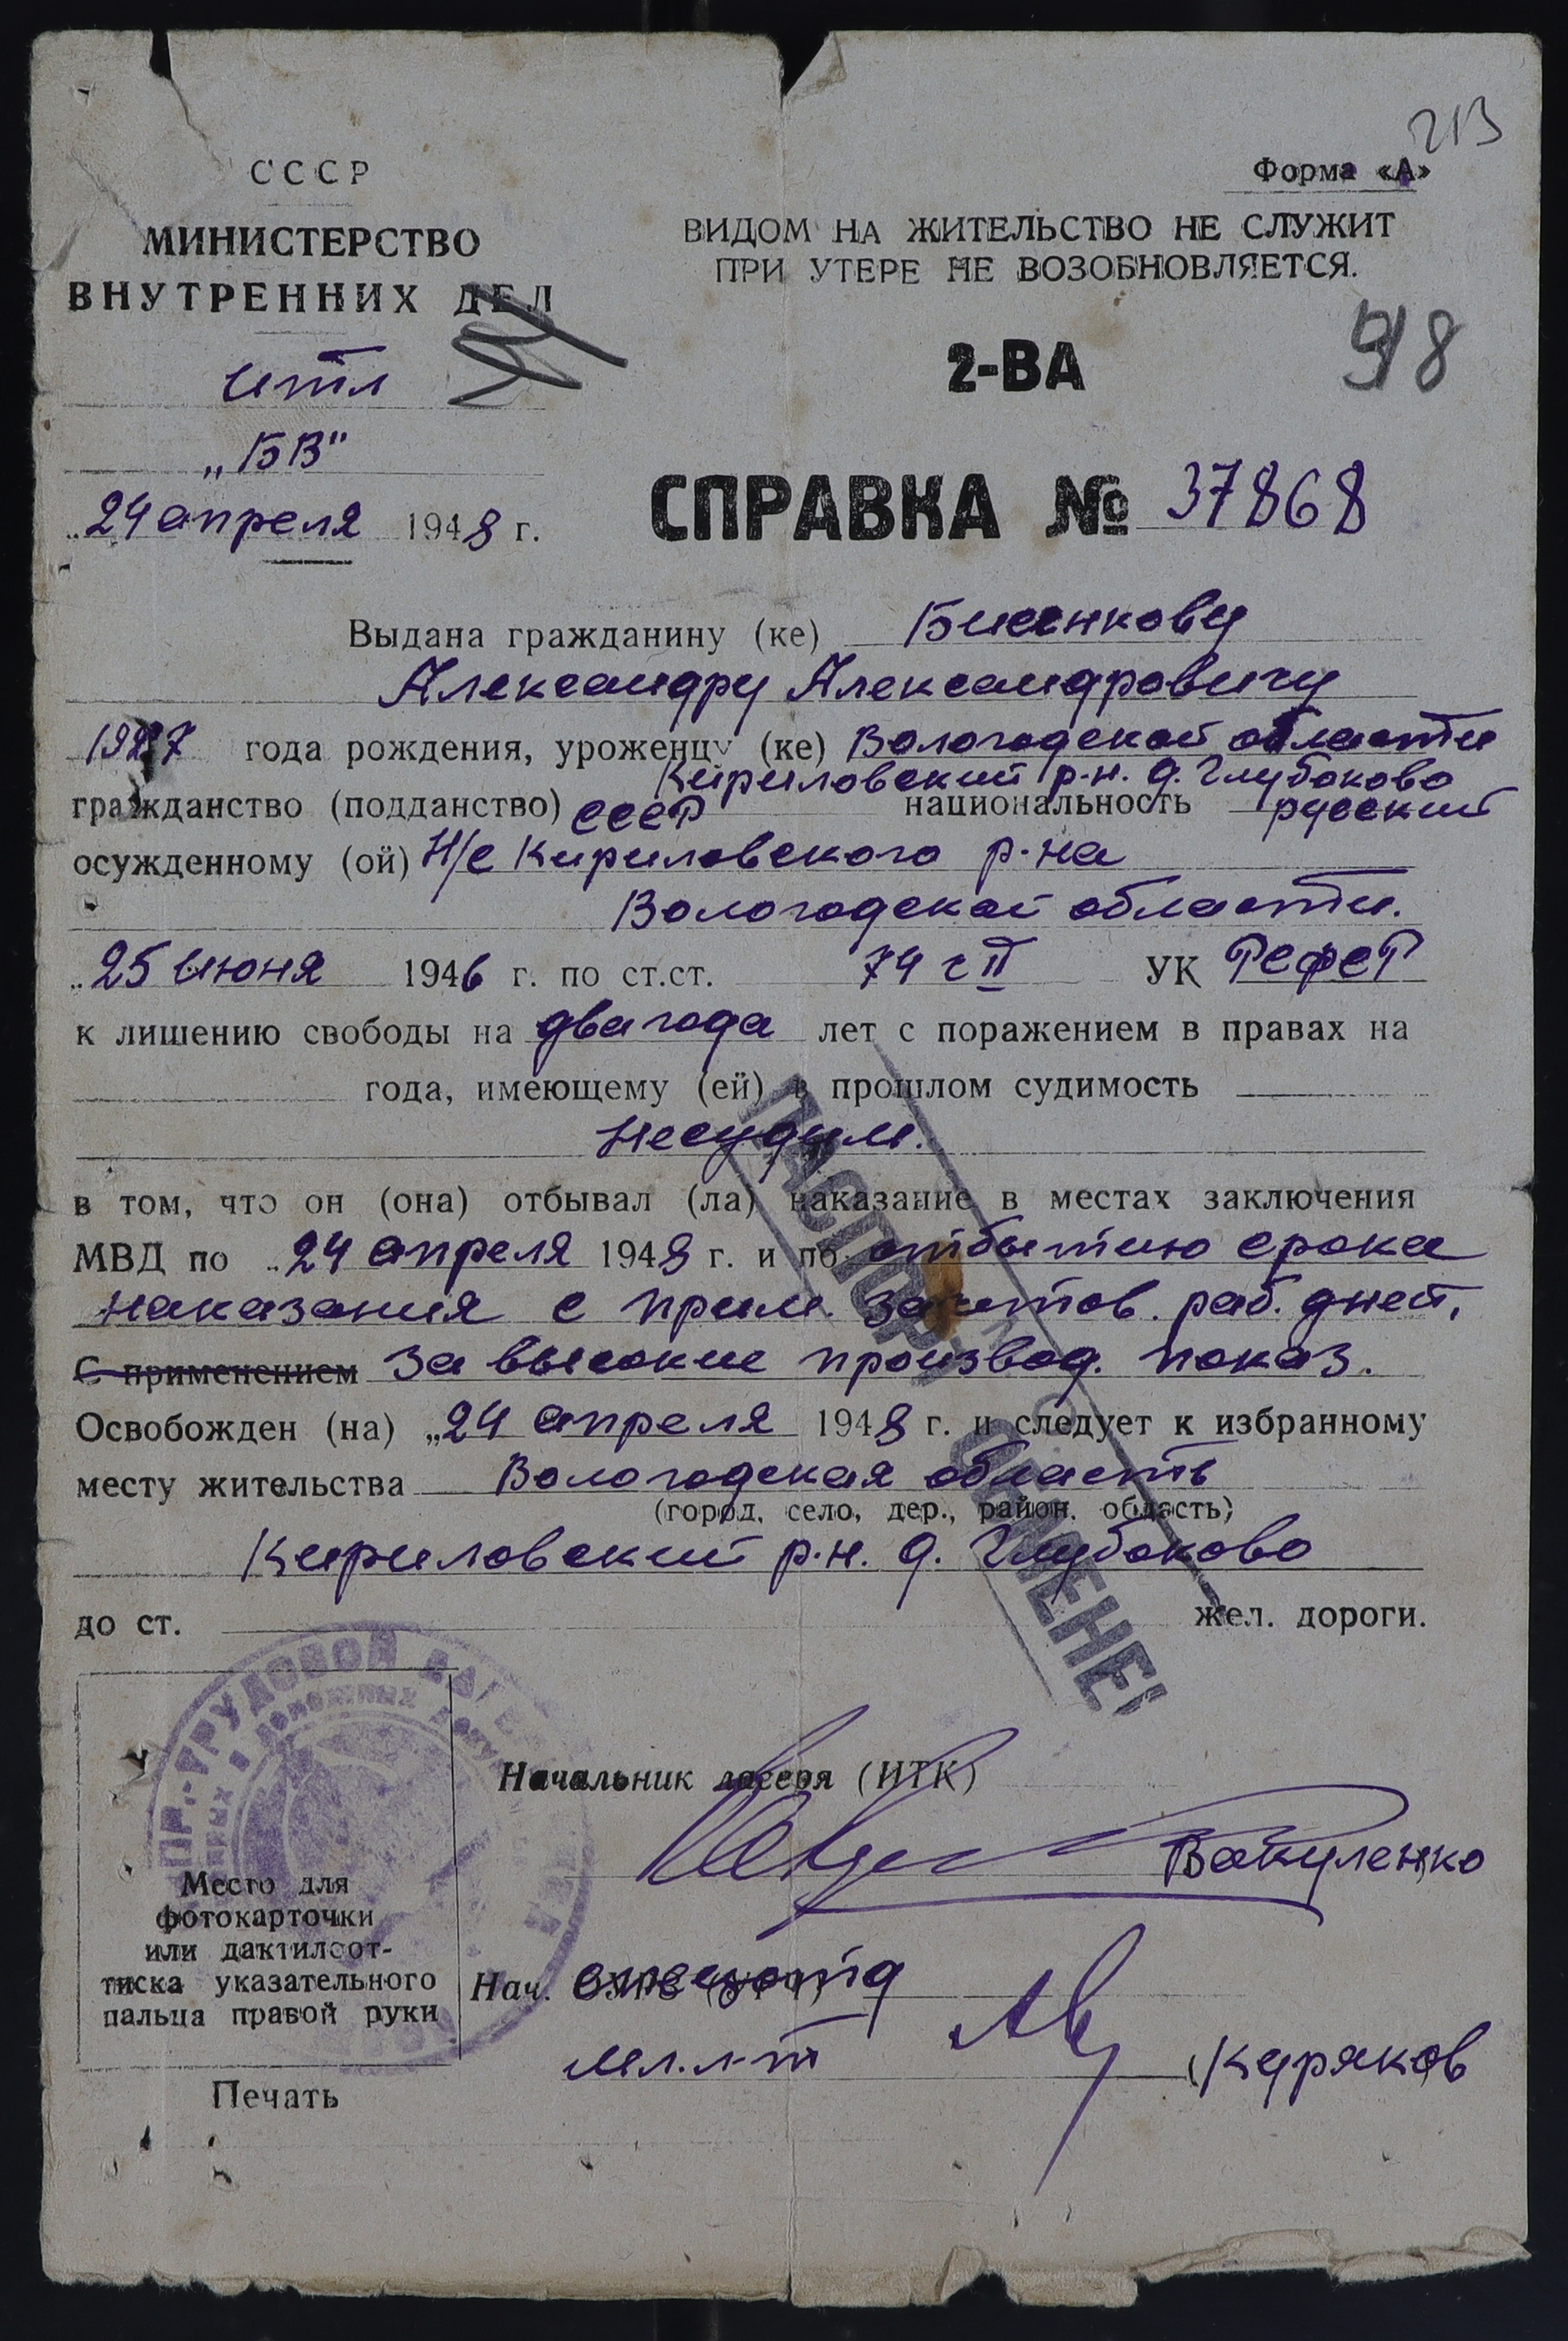 213
СССР
Форма «А»
МИНИСТЕРСТВО
ВНУТРЕННИХ ДЕЛ
ВИДОМ НА ЖИТЕЛЬСТВО НЕ СЛУЖИТ
ПРИ УТЕРЕ НЕ ВОЗОБНОВЛЯЕТСЯ.
итл
„БВ"
2-ВА
98
„24 апреля 1948 г.
СПРАВКА № 37868
Выдана гражданину (ке)
Александру Александровичу
1927 года рождения, уроженцу (ке) Вологодской области
Кириловский р-н. д. Глубоково
гражданство (подданство) СССР национальность русский
осужденному (ой) Н/с Кириловского р-на
Вологодской области.
„25 июня 1946 г. по ст.ст. 74 ч II УК РСФСР
к лишению свободы на два года лет с поражением в правах на
года, имеющему (ей) в прошлом судимость
несудим.
в том, что он (она) отбывал (ла) наказание в местах заключения
МВД по „24 апреля 1948 г. и по отбытию срока
наказания с прим. зачетов раб. дней,
С применением за высокие производ. показ.
Освобожден (на) „24 апреля 1948 г. и следует к избранному
месту жительства Вологодская область
(город, село, дер., район, область)
Кириловский р-н. д. Глубоково
до ст. жел. дороги.
ПАСПОРТ
ОБМЕНЕ
Начальник лагеря (ИТК)
Вакуленко
Место для
фотокарточки
или дактилоот-
тиска указательного
пальца правой руки
Нач.
мл. л-т
(Куряков
Печать